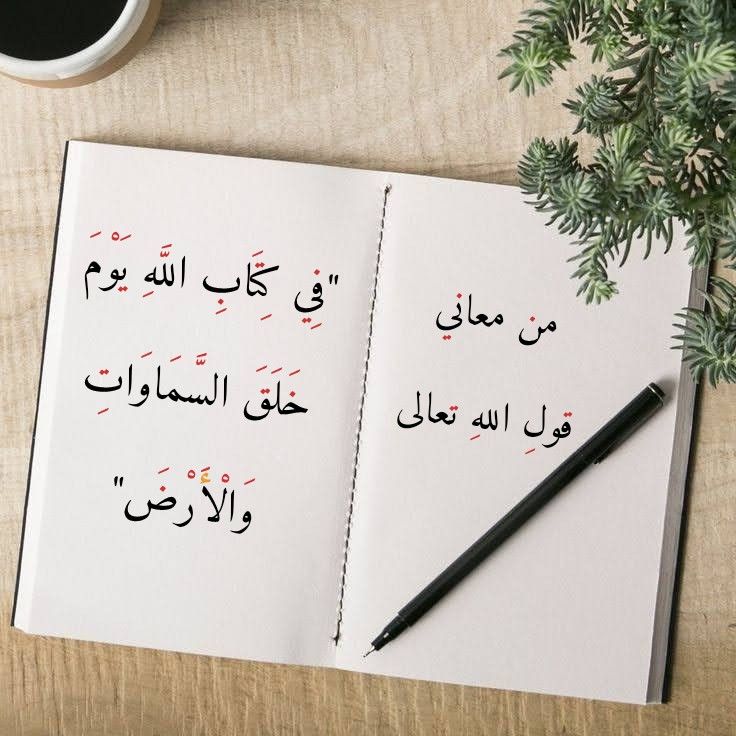 من معاني
قولِ اللهِ تعالى
"فِي كِتَابِ اللَّهِ يَوْمَ
خَلَقَ السَّمَاوَاتِ
وَالْأَرْضَ"